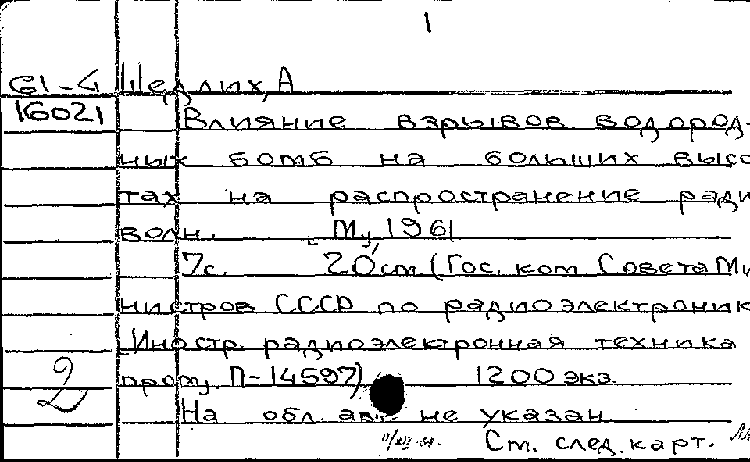 1
61-4 Шедлих, А
16021 Влияние взрывов водород-
ных бомб на больших высо
тах на распространение ради
волн. М., 1961
7с. 20см (Гос. ком Совета Ми
нистров СССР по радиоэлектроник
Иностр. радиоэлектронная техника
2 пром. П-14597) 1200 экз.
На обл авт. не указан
См. след. карт.